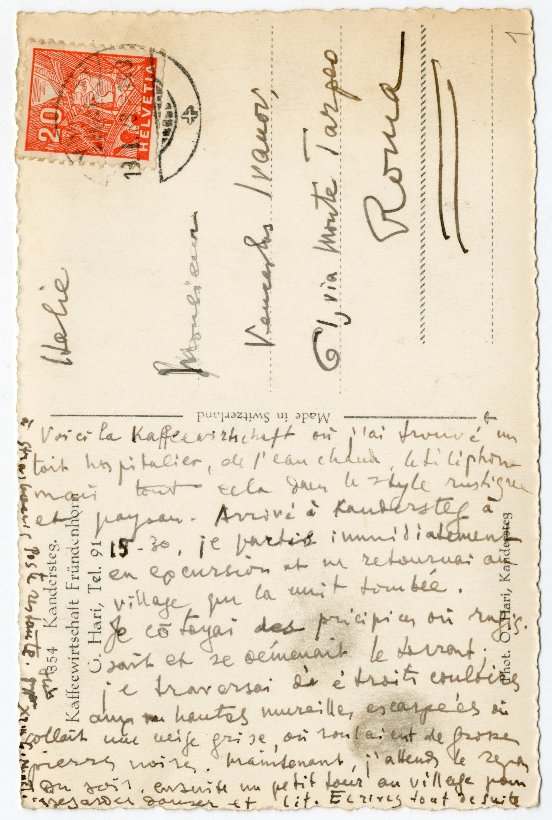 1
20
HELVETIA
Italie
Monsieur
Venceslas Ivanov,
61, via Monte Tarpeo
Roma
Made in Switzerland
854 - Kandersteg.
Kaffeewirtschaft Fründenhorn
G. Hari, Tel. 91
Phot. O. Hari, Kandersteg
Voici la Kaffeewirtschaft où j'ai trouvé un
toit hospitalier, de l'eau chaude, le téléphone
mais tout cela dans le style rustique
et paysan. Arrivé à Kandersteg à
15-30, je partis immédiatement
en excursion et ne retournai au
village que la nuit tombée.
Je côtoyai des précipices où
et se démenait le torrent.
je traversai d'étroits
aux hautes murailles escarpées où
collait une neige grise, où roulaient de grosses
pierres noires. Maintenant, j'attends le repas
du soir, ensuite un petit tour au village pour
regarder danser et lit. Ecrivez tout de suite
à Strasbourg Poste restante.